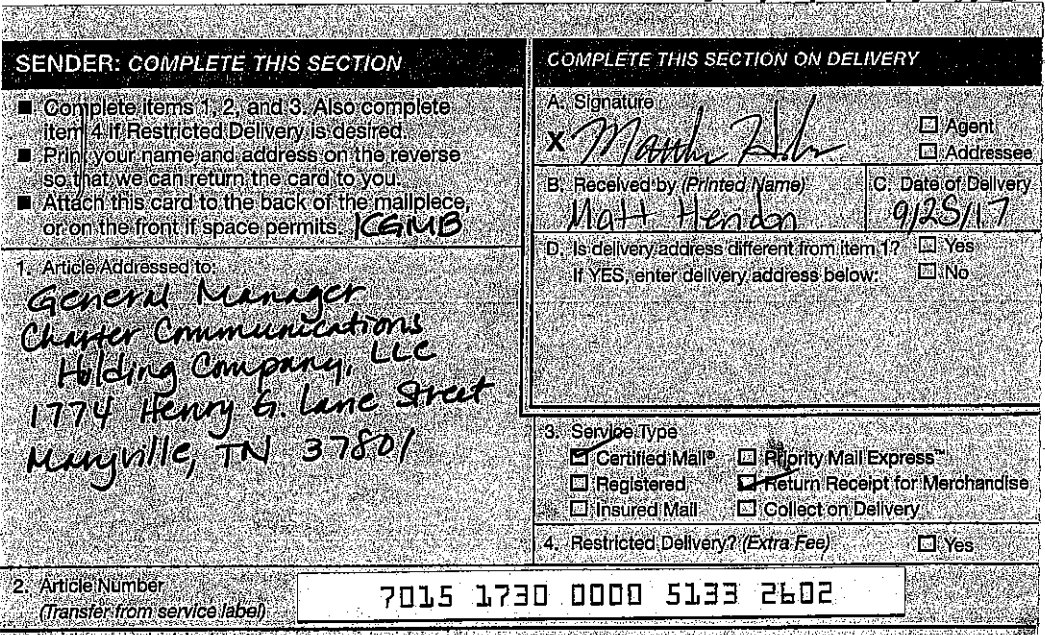 SENDER: COMPLETE THIS SECTION
■ Complete items 1, 2, and 3. Also complete
item 4 if Restricted Delivery is desired.
■ Print your name and address on the reverse
so that we can return the card to you.
■ Attach this card to the back of the mailpiece,
or on the front if space permits. KGMB
1. Article Addressed to:
General Manager
Charter Communications
Holding Company, LLC
1774 Henry G. Lane Street
Maryville, TN 37801
COMPLETE THIS SECTION ON DELIVERY
A. Signature
X
☐ Agent
☐ Addressee
B. Received by (Printed Name)
Matt Hendon
C. Date of Delivery
9/25/17
D. Is delivery address different from item 1? ☐ Yes
If YES, enter delivery address below: ☐ No
3. Service Type
☑ Certified Mail® ☐ Priority Mail Express™
☐ Registered ☑ Return Receipt for Merchandise
☐ Insured Mail ☐ Collect on Delivery
4. Restricted Delivery? (Extra Fee) ☐ Yes
2. Article Number
(Transfer from service label)
7015 1730 0000 5133 2602